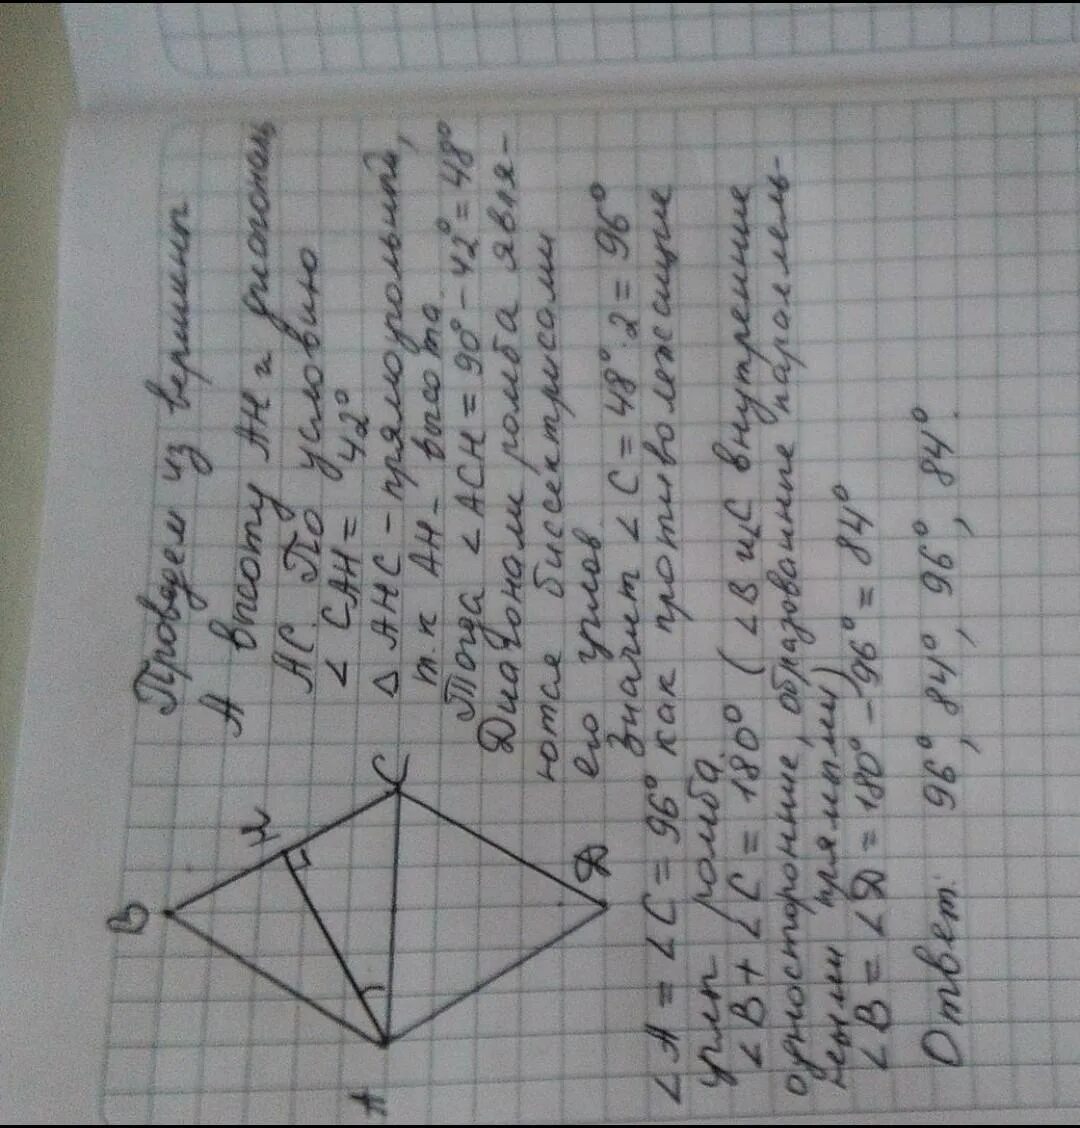 B
H
C
A
D
Проведем из вершины
А высоту АН и диогональ
АС. По условию
∠ САН = 42°
Δ АНС - прямоугольный,
т.к АН - высота.
Тогда ∠АСН = 90° - 42° = 48°
Диагонали ромба явля-
ются биссектрисами
его углов
Значит ∠С = 48°·2 = 96°
∠А = ∠С = 96° как противолежащие
углы ромба.
∠В + ∠С = 180° (∠В и ∠С внутренние
односторонние, образованные паралель-
ными прямыми)
∠В = ∠D = 180° - 96° = 84°
Ответ: 96°, 84°, 96°, 84°.